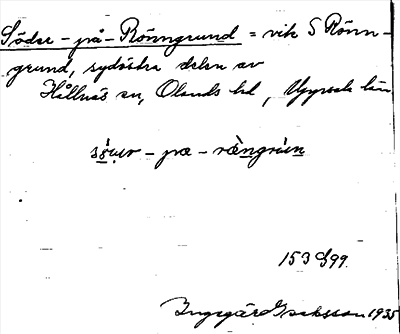 Söder-på-Rönngrund = vik S Rönn-
grund, sydöstra delen av
Hållnäs sn, Olands hd, Uppsala län
153 G 99.
Ingegärd Isaksson 1935